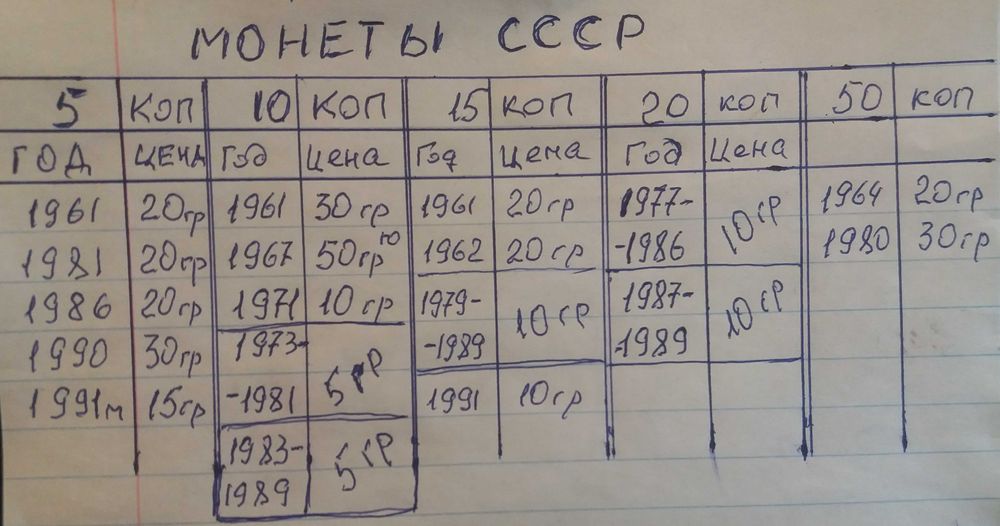 МОНЕТЫ СССР
5 КОП 10 КОП 15 КОП 20 КОП 50 КОП
ГОД ЦЕНА Год Цена Год Цена Год Цена
1961 20гр 1961 30гр 1961 20гр 1977- 10гр 1964 20гр
1981 20гр 1967 50гр ю 1962 20гр -1986 1980 30гр
1986 20гр 1971 10гр 1979- 10гр 1987- 10гр
1990 30гр 1973- 5гр -1989 -1989
1991м 15гр -1981 1991 10гр
1983- 5гр
1989